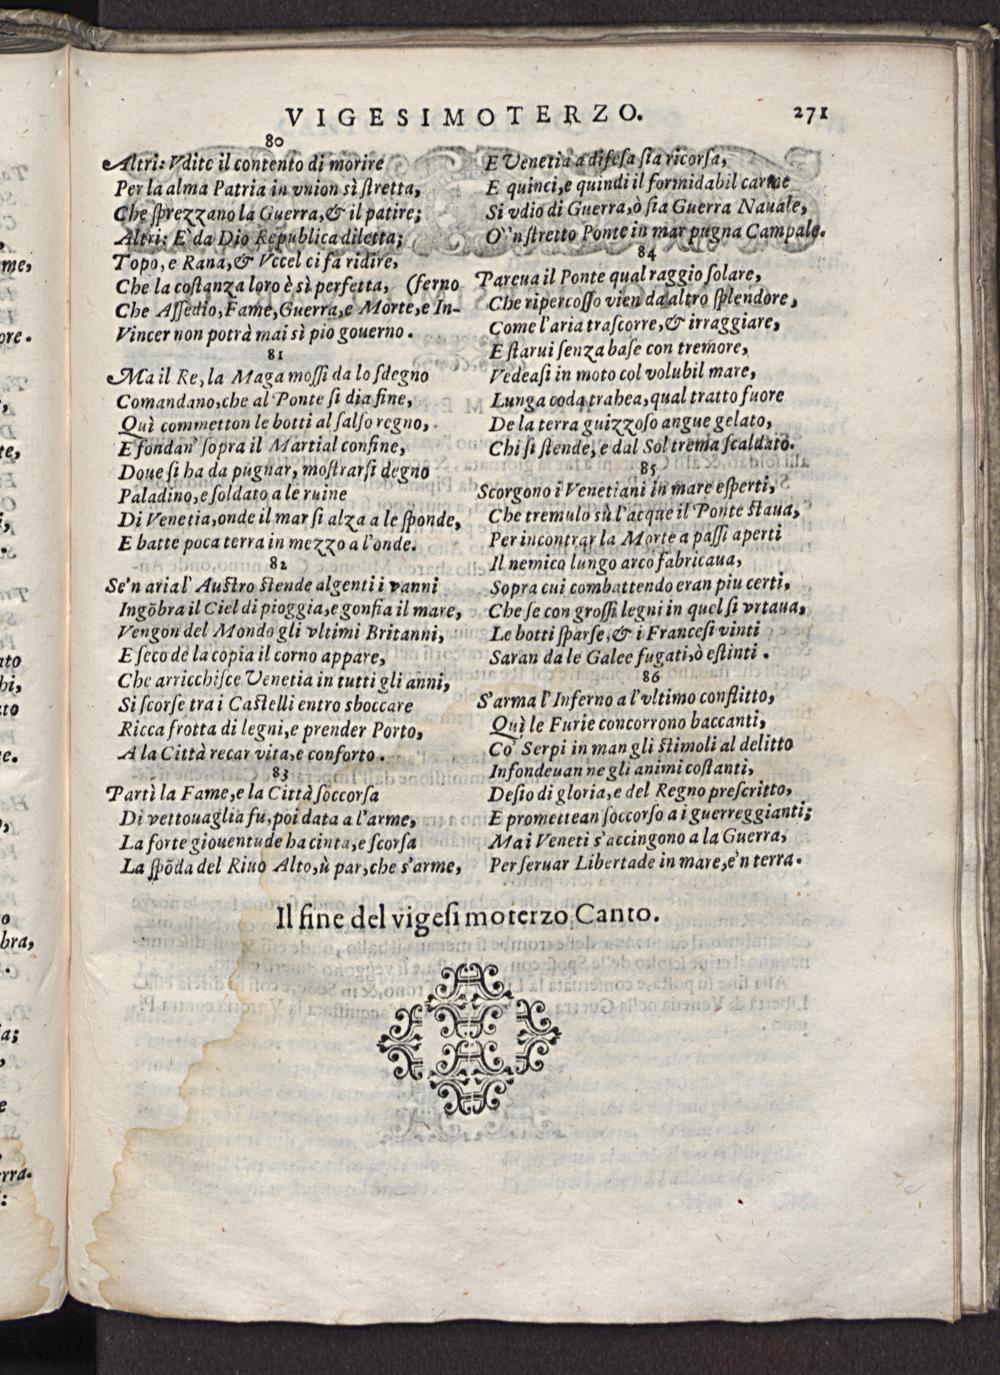 VIGESIMOTERZO. 271
80
Altri: Vdite il contento di morire
Per la alma Patria in vnion sì ſtretta,
Che ſprezzano la Guerra, & il patire;
Altri: E' da Dio Republica diletta;
Topo, e Rana, & Vccel ci fa ridire,
Che la coſtanza loro è sì perfetta, (ferno
Che Aſſedio, Fame, Guerra, e Morte, e In-
Vincer non potrà mai sì pio gouerno.
81
Ma il Re, la Maga moſſi da lo ſdegno
Comandano, che al Ponte ſi dia fine,
Quì commetton le botti al ſalſo regno,
E fondan' ſopra il Martial confine,
Doue ſi ha da pugnar, moſtrarſi degno
Paladino, e ſoldato a le ruine
Di Venetia, onde il mar ſi alza a le ſponde,
E batte poca terra in mezzo a l'onde.
82
Se'n aria l' Auſtro ſtende algenti i vanni
Ingõbra il Ciel di pioggia, e gonfia il mare,
Vengon del Mondo gli vltimi Britanni,
E ſeco de la copia il corno appare,
Che arricchiſce Venetia in tutti gli anni,
Si ſcorſe tra i Caſtelli entro sboccare
Ricca frotta di legni, e prender Porto,
A la Città recar vita, e conforto.
83
Partì la Fame, e la Città ſoccorſa
Di vettouaglia fu, poi data a l'arme,
La forte giouentude ha cinta, e ſcorſa
La ſpõda del Riuo Alto, ù par, che s'arme,
E Venetia a difeſa ſia ricorſa,
E quinci, e quindi il formidabil carme
Si vdio di Guerra, ò ſia Guerra Nauale,
O''nſtretto Ponte in mar pugna Campale.
84
Pareua il Ponte qual raggio ſolare,
Che ripercoſſo vien da altro ſplendore,
Come l'aria traſcorre, & irraggiare,
E ſtarui ſenza baſe con tremore,
Vedeaſi in moto col volubil mare,
Lunga coda trahea, qual tratto fuore
De la terra guizzoſo angue gelato,
Chi ſi ſtende, e dal Sol trema ſcaldato.
85
Scorgono i Venetiani in mare eſperti,
Che tremulo sù l'acque il Ponte ſtaua,
Per incontrar la Morte a paſſi aperti
Il nemico lungo arco fabricaua,
Sopra cui combattendo eran piu certi,
Che ſe con groſſi legni in quel ſi vrtaua,
Le botti ſparſe, & i Franceſi vinti
Saran da le Galee fugati, ò eſtinti.
86
S'arma l' Inferno a l'vltimo conflitto,
Quì le Furie concorrono baccanti,
Co' Serpi in man gli ſtimoli al delitto
Infondeuan ne gli animi coſtanti,
Deſio di gloria, e del Regno preſcritto,
E promettean ſoccorſo a i guerreggianti;
Ma i Veneti s'accingono a la Guerra,
Per ſeruar Libertade in mare, e'n terra.
Il fine del vigeſimoterzo Canto.